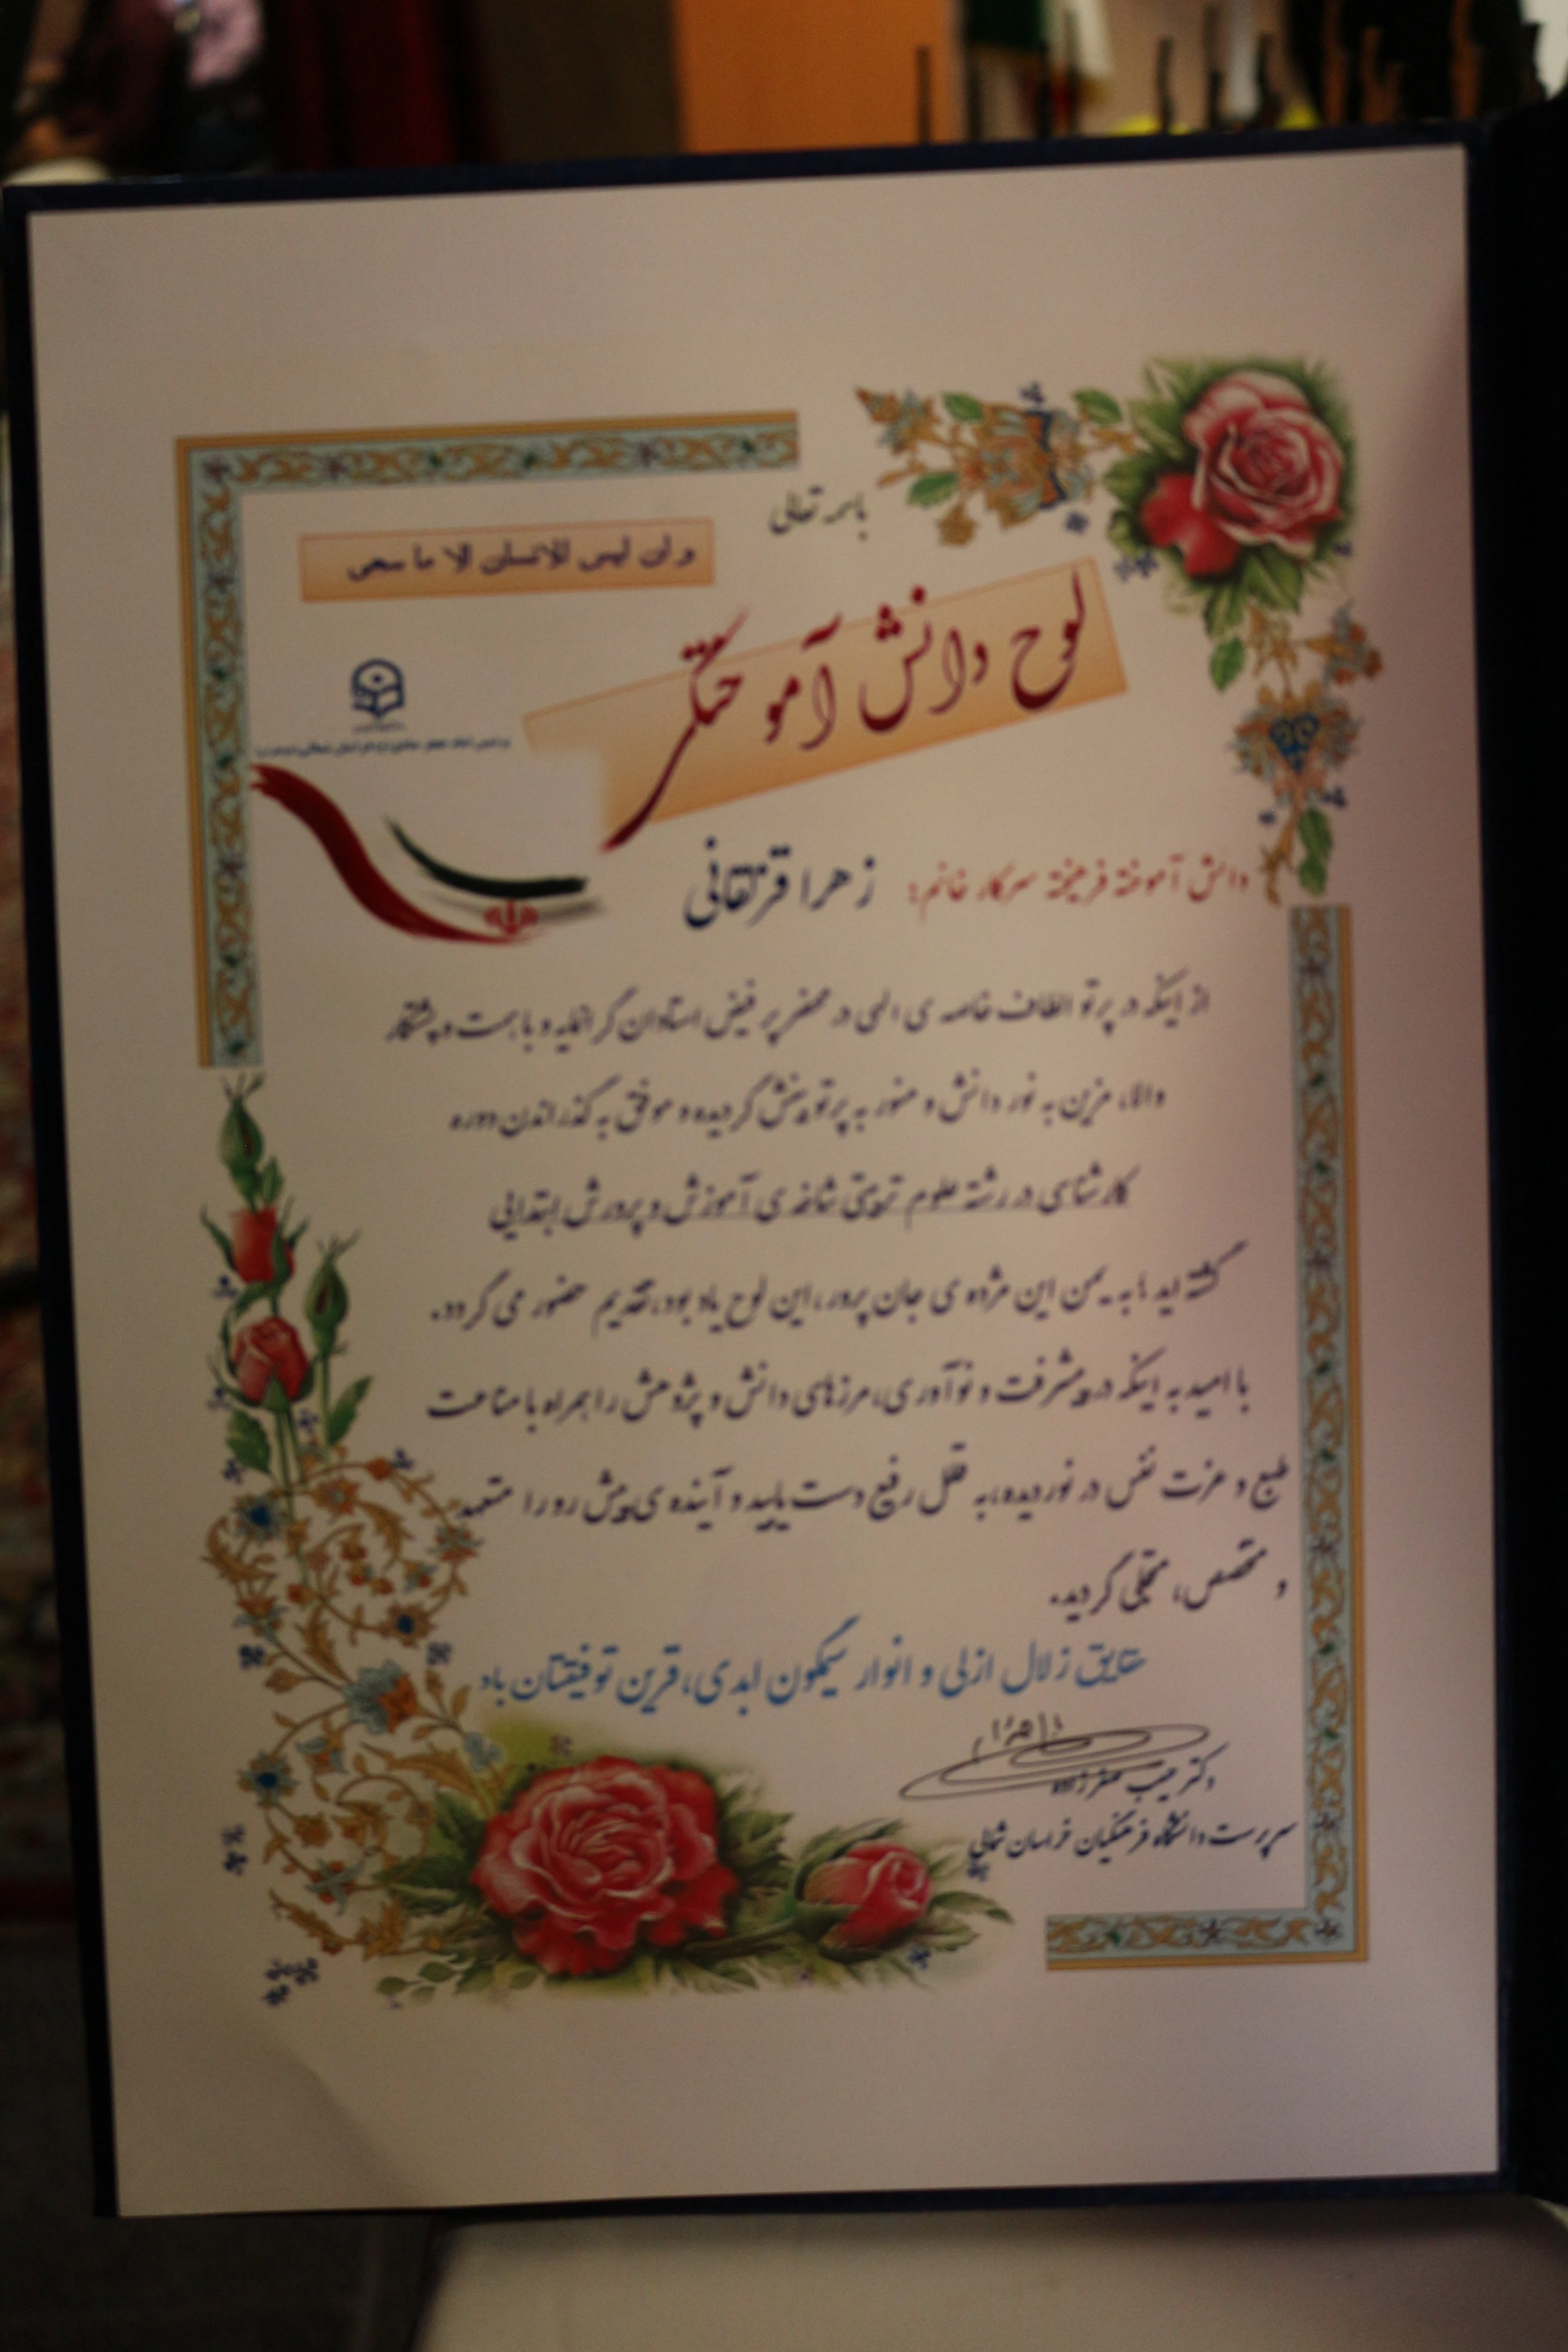 باسمه تعالی
و ان لیس للانسان الا ما سعی
لوح دانش آموختگی
دانش آموخته فرهیخته سرکار خانم: زهرا قرتقانی
از اینکه در پرتو الطاف خاصه ی الهی در محضر پر فیض استادان گرانمایه و با همت و پشتکار
والا، مزین به نور دانش و منور به پرتو بینش گردیده و موفق به گذراندن دوره
کارشناسی در رشته علوم تربیتی شاخه ی آموزش و پرورش ابتدایی
گشته اید، به یمن این مژده ی جان پرور، این لوح یاد بود، تقدیم حضور می گردد.
با امید به اینکه در پیشرفت و نوآوری، مرزهای دانش و پژوهش را همراه با مناعت
طبع و عزت نفس در نوردیده، به قلل رفیع دست یابید و آینده ی پیش رو را متعهد
و متخصص، متجلی گردید.
حقایق زلال ازلی و انوار سیمگون ابدی، قرین توفیقتان باد
دکتر حبیب صفرزاده
سرپرست دانشگاه فرهنگیان خراسان شمالی